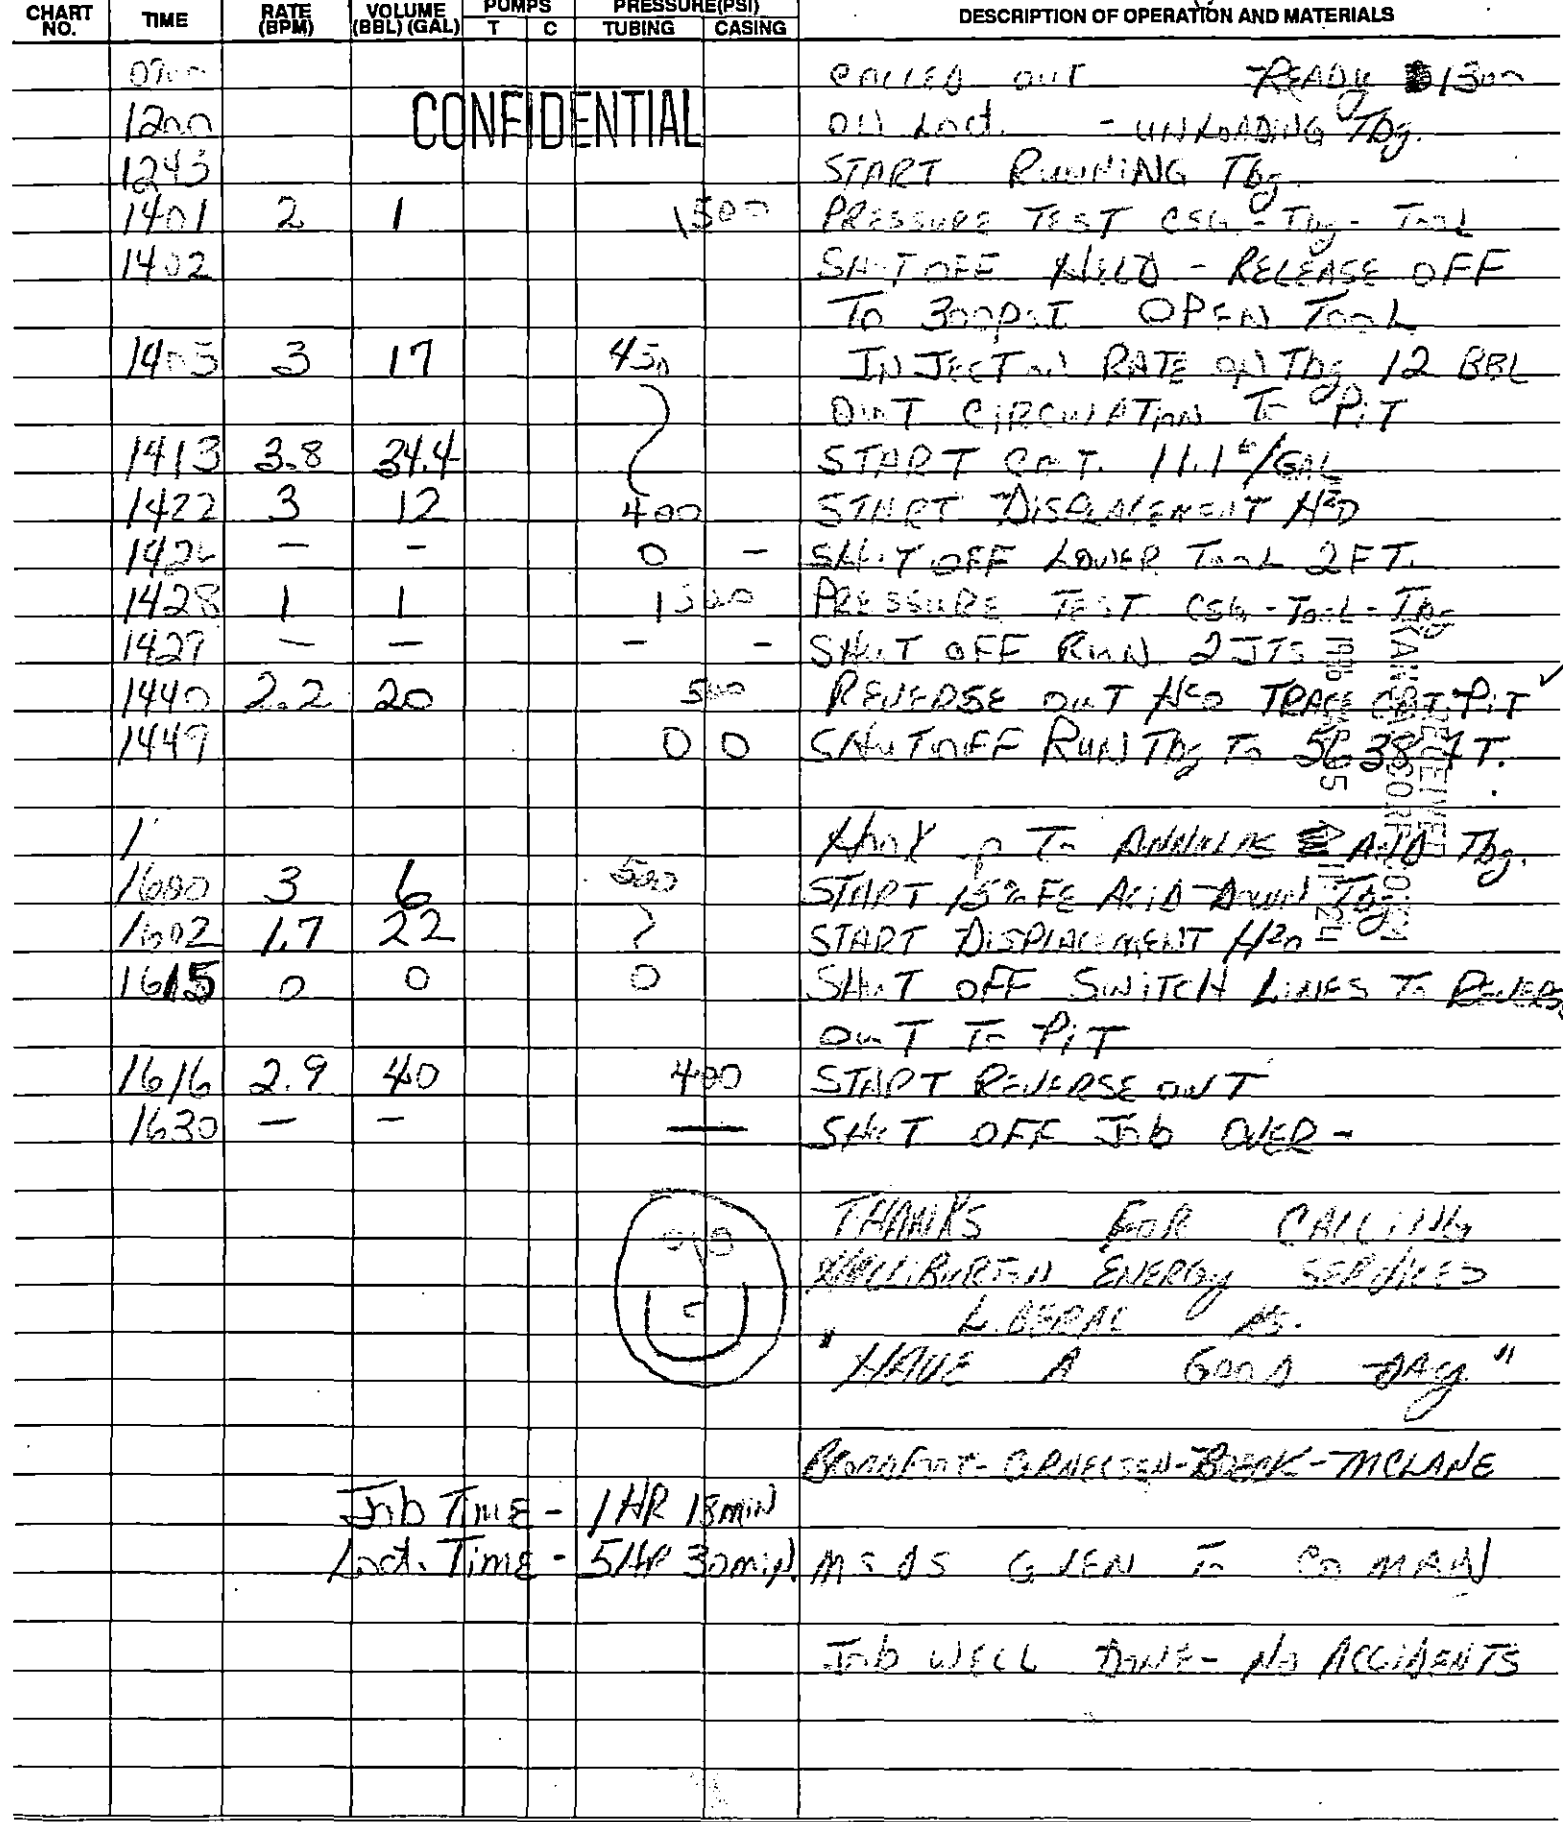 CHART NO. TIME RATE (BPM) VOLUME (BBL) (GAL) PUMPS T C PRESSURE(PSI) TUBING CASING DESCRIPTION OF OPERATION AND MATERIALS
0900 CALLED OUT READY 1300
CONFIDENTIAL
1200 ON Loct. - UNLOADING Tbg.
1243 START RUNNING Tbg
1401 2 1 1500 PRESSURE TEST CSG - Tbg - TOOL
1402 SHUT OFF HELD - RELEASE OFF
TO 300PSI OPEN TOOL
1405 3 17 450 INJECTION RATE ON Tbg 12 BBL
OUT CIRCULATION TO PIT
1413 3.8 34.4 START CMT. 11.1#/GAL
1422 3 12 400 START DISPLACEMENT H2O
1426 - - 0 - SHUT OFF LOWER TOOL 2 FT.
1428 1 1 PRESSURE TEST CSG - TOOL - Tbg
1429 - - - - SHUT OFF RUN 2 JTS
1440 2.2 20 500 REVERSE OUT H2O TRACE CMT PIT ✓
1449 0 0 SHUT OFF RUN Tbg TO 5638 FT.
RECEIVED
HOOK UP TO ANNULUS AND Tbg.
1600 3 6 500 START 15% FE ACID DOWN Tbg
1602 1.7 22 START DISPLACEMENT H2O
1615 0 0 0 SHUT OFF SWITCH LINES TO REVERSE
OUT TO PIT
1616 2.9 40 400 START REVERSE OUT
1630 - - — SHUT OFF JOB OVER -
THANKS FOR CALLING
HALLIBURTON ENERGY SERVICES
LIBERAL KS.
"HAVE A GOOD DAY"
MCLANE
Job TIME - 1 HR 18 MIN
Loct. Time - 5 HR 30 min. MSDS GIVEN TO CO MAN
JOB WELL DONE - NO ACCIDENTS